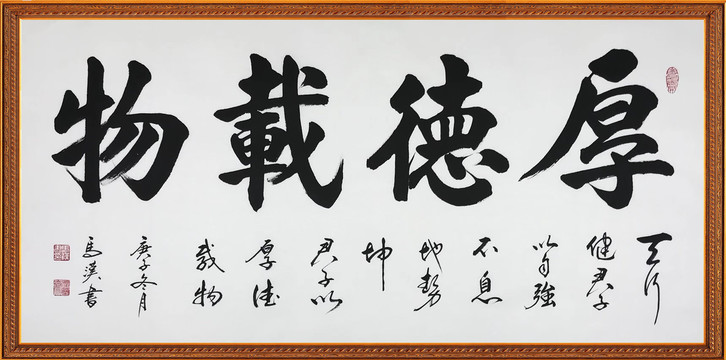 厚德載物
天行
健君子
以自強
不息
地勢
坤
君子以
厚德
載物
庚子冬月
馬漢書